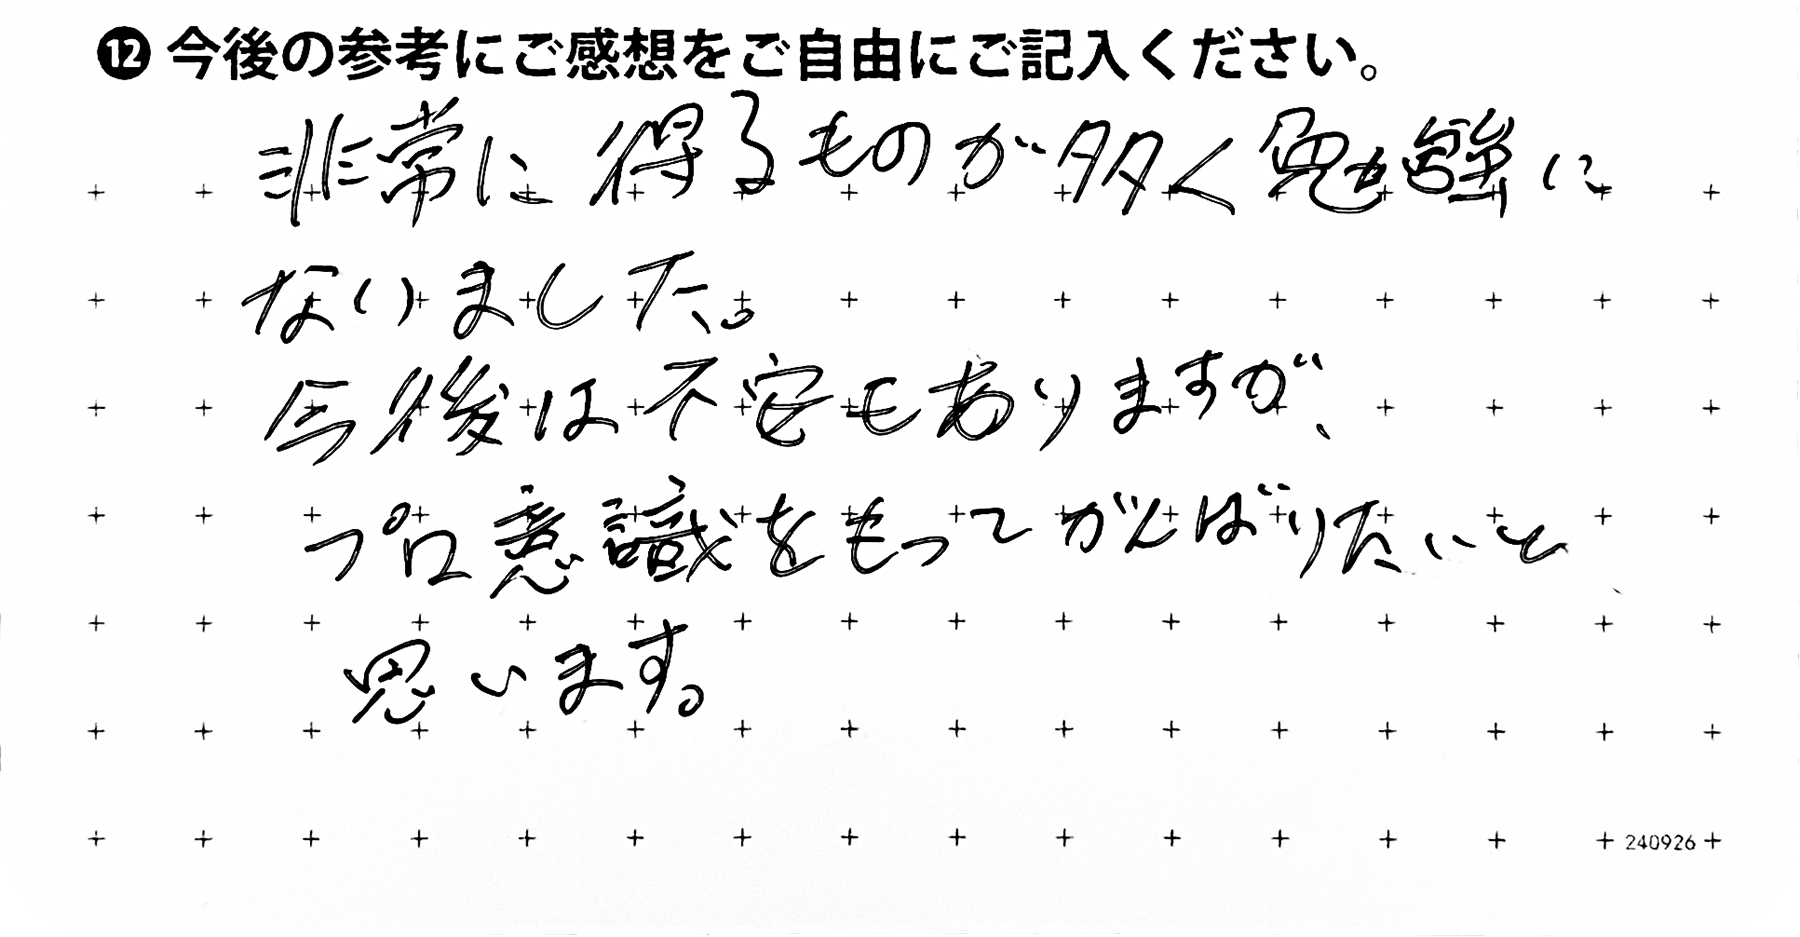 ⓬ 今後の参考にご感想をご自由にご記入ください。
非常に得るものが多く勉強に
なりました。
今後は不安もありますが、
プロ意識をもってがんばりたいと
思います。
240926